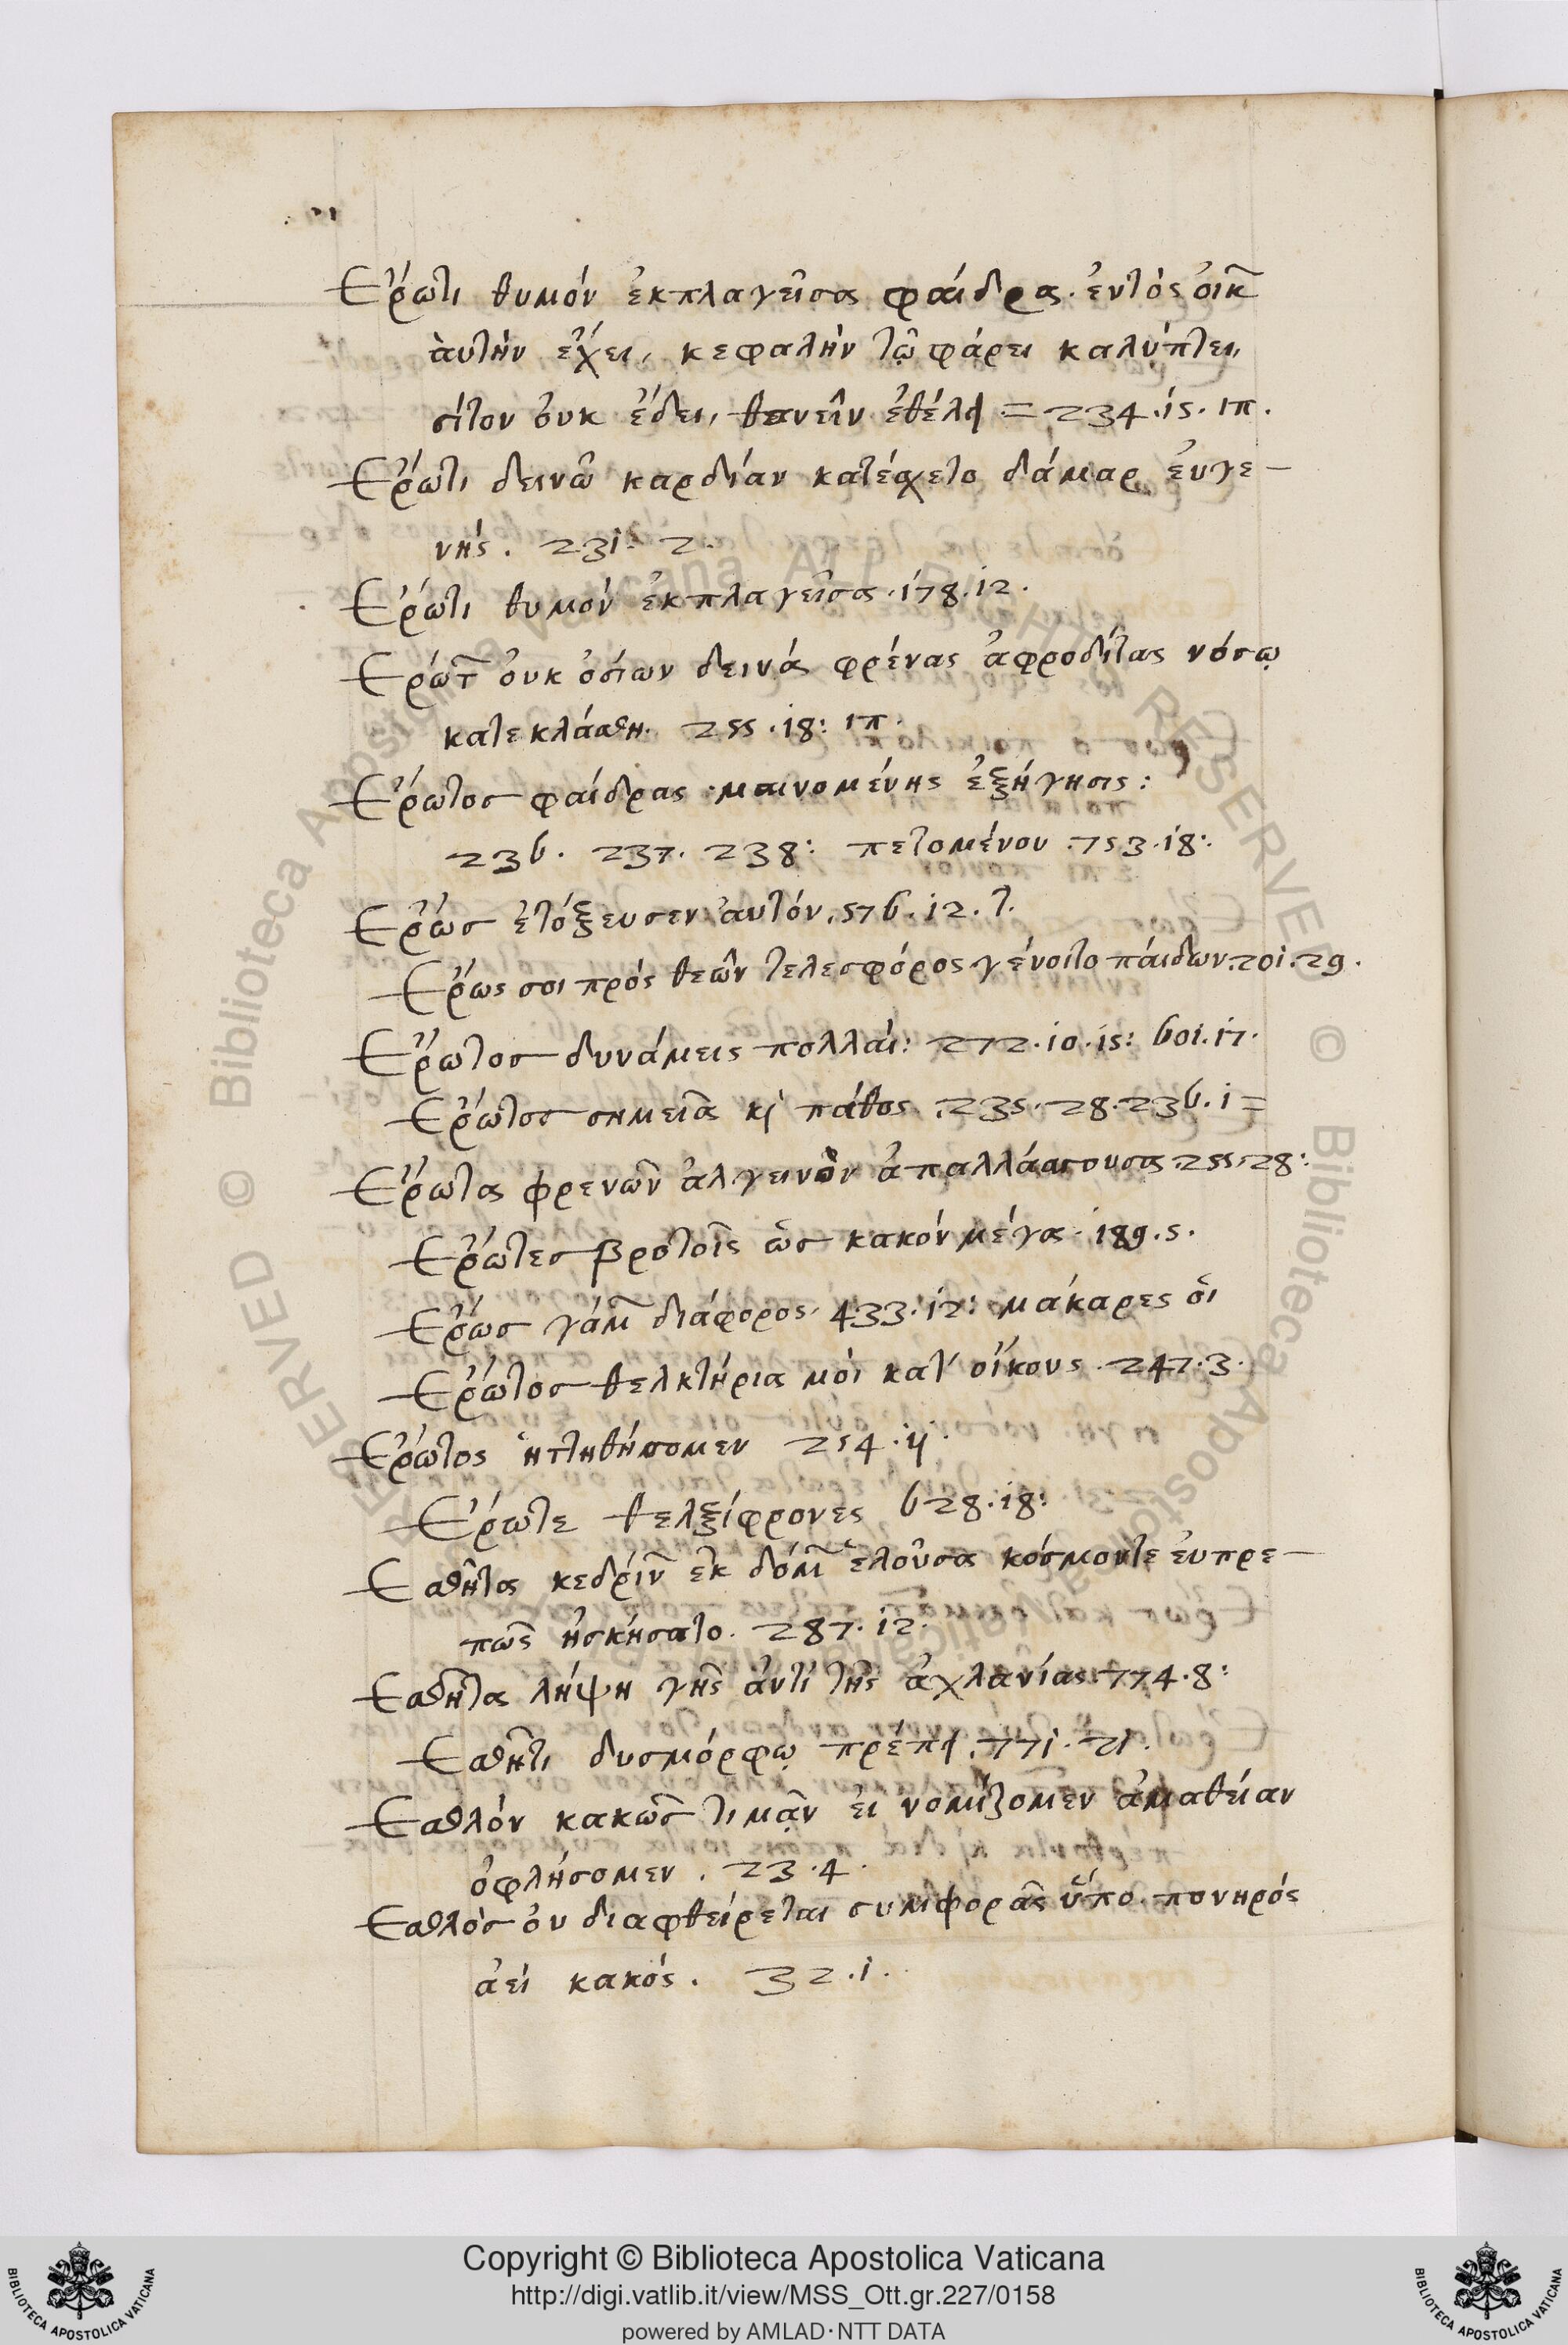 Ἔρωτι θυμόν ἐκπλαγεῖσα φαίδρα. ἐντός οἴκ
ἀυτήν ἔχει, κεφαλήν τῷ φάρει καλύπτει,
σίτον ὀυκ ἔδει, θανεῖν ἐθέλει = 234. 15. ιπ.
Ἔρωτι δεινῶ καρδίαν κατέσχετο δάμαρ ἐυγε-
νής. 231. 2.
Ἔρωτι θυμόν ἐκπλαγεῖσα. 178. 12.
Ἐρώτ ὀυκ ὁσίων δεινά φρένας ἀφροδίτας νόσῳ
κατεκλάσθη. 255. 18: ιπ.
Ἔρωτος φαίδρας μαινομένης ἐξήγησις:
236. 237. 238: πετομένου. 753. 18:
Ἔρως ἐτόξευσεν ἀυτόν. 576. 12. τ.
Ἔρως σοι πρός θεῶν τελεσφόρος γένοιτο πάιδων. 201. 29.
Ἔρωτος δυνάμεις πολλάι: 272. 10. 15: 601. 17.
Ἔρωτος σημεῖα κὶ πάθος. 235. 28. 236. 1 =
Ἔρωτα φρενῶν ἀλγεινὸν ἀπαλλάσσουσα. 255. 28:
Ἔρωτες βροτοῖς ὡς κακόν μέγα. 189. 5.
Ἔρως γάμ διάφορος. 433. 12: μάκαρες ὅι
Ἔρωτος θελκτήρια μόι κατ' οἴκους. 247. 3.
Ἔρωτος ἡττηθήσομεν 254. 11.
Ἔρωτε θελξίφρονες 628. 18:
Εσθῆτα κεδρίν ἐκ δόμ ἑλοῦσα κόσμοντε ἐυπρε-
πῶς ἠσκήσατο. 287. 12.
Εσθῆτα λήψη γῆς ἀντί τῆς ἀχλανίας. 774. 8:
Εσθῆτι δυσμόρφῳ πρέπει. 771. 21.
Εσθλόν κακῶς τιμᾷν ἐι νομίζομεν ἀμαθείαν
ὀφλήσομεν. 23. 4.
Εσθλὸς ὀυ διαφθείρεται συμφορᾶς ὕπο. πονηρός
ἀεί κακός. 32. 1.
Copyright © Biblioteca Apostolica Vaticana
http://digi.vatlib.it/view/MSS_Ott.gr.227/0158
powered by AMLAD·NTT DATA